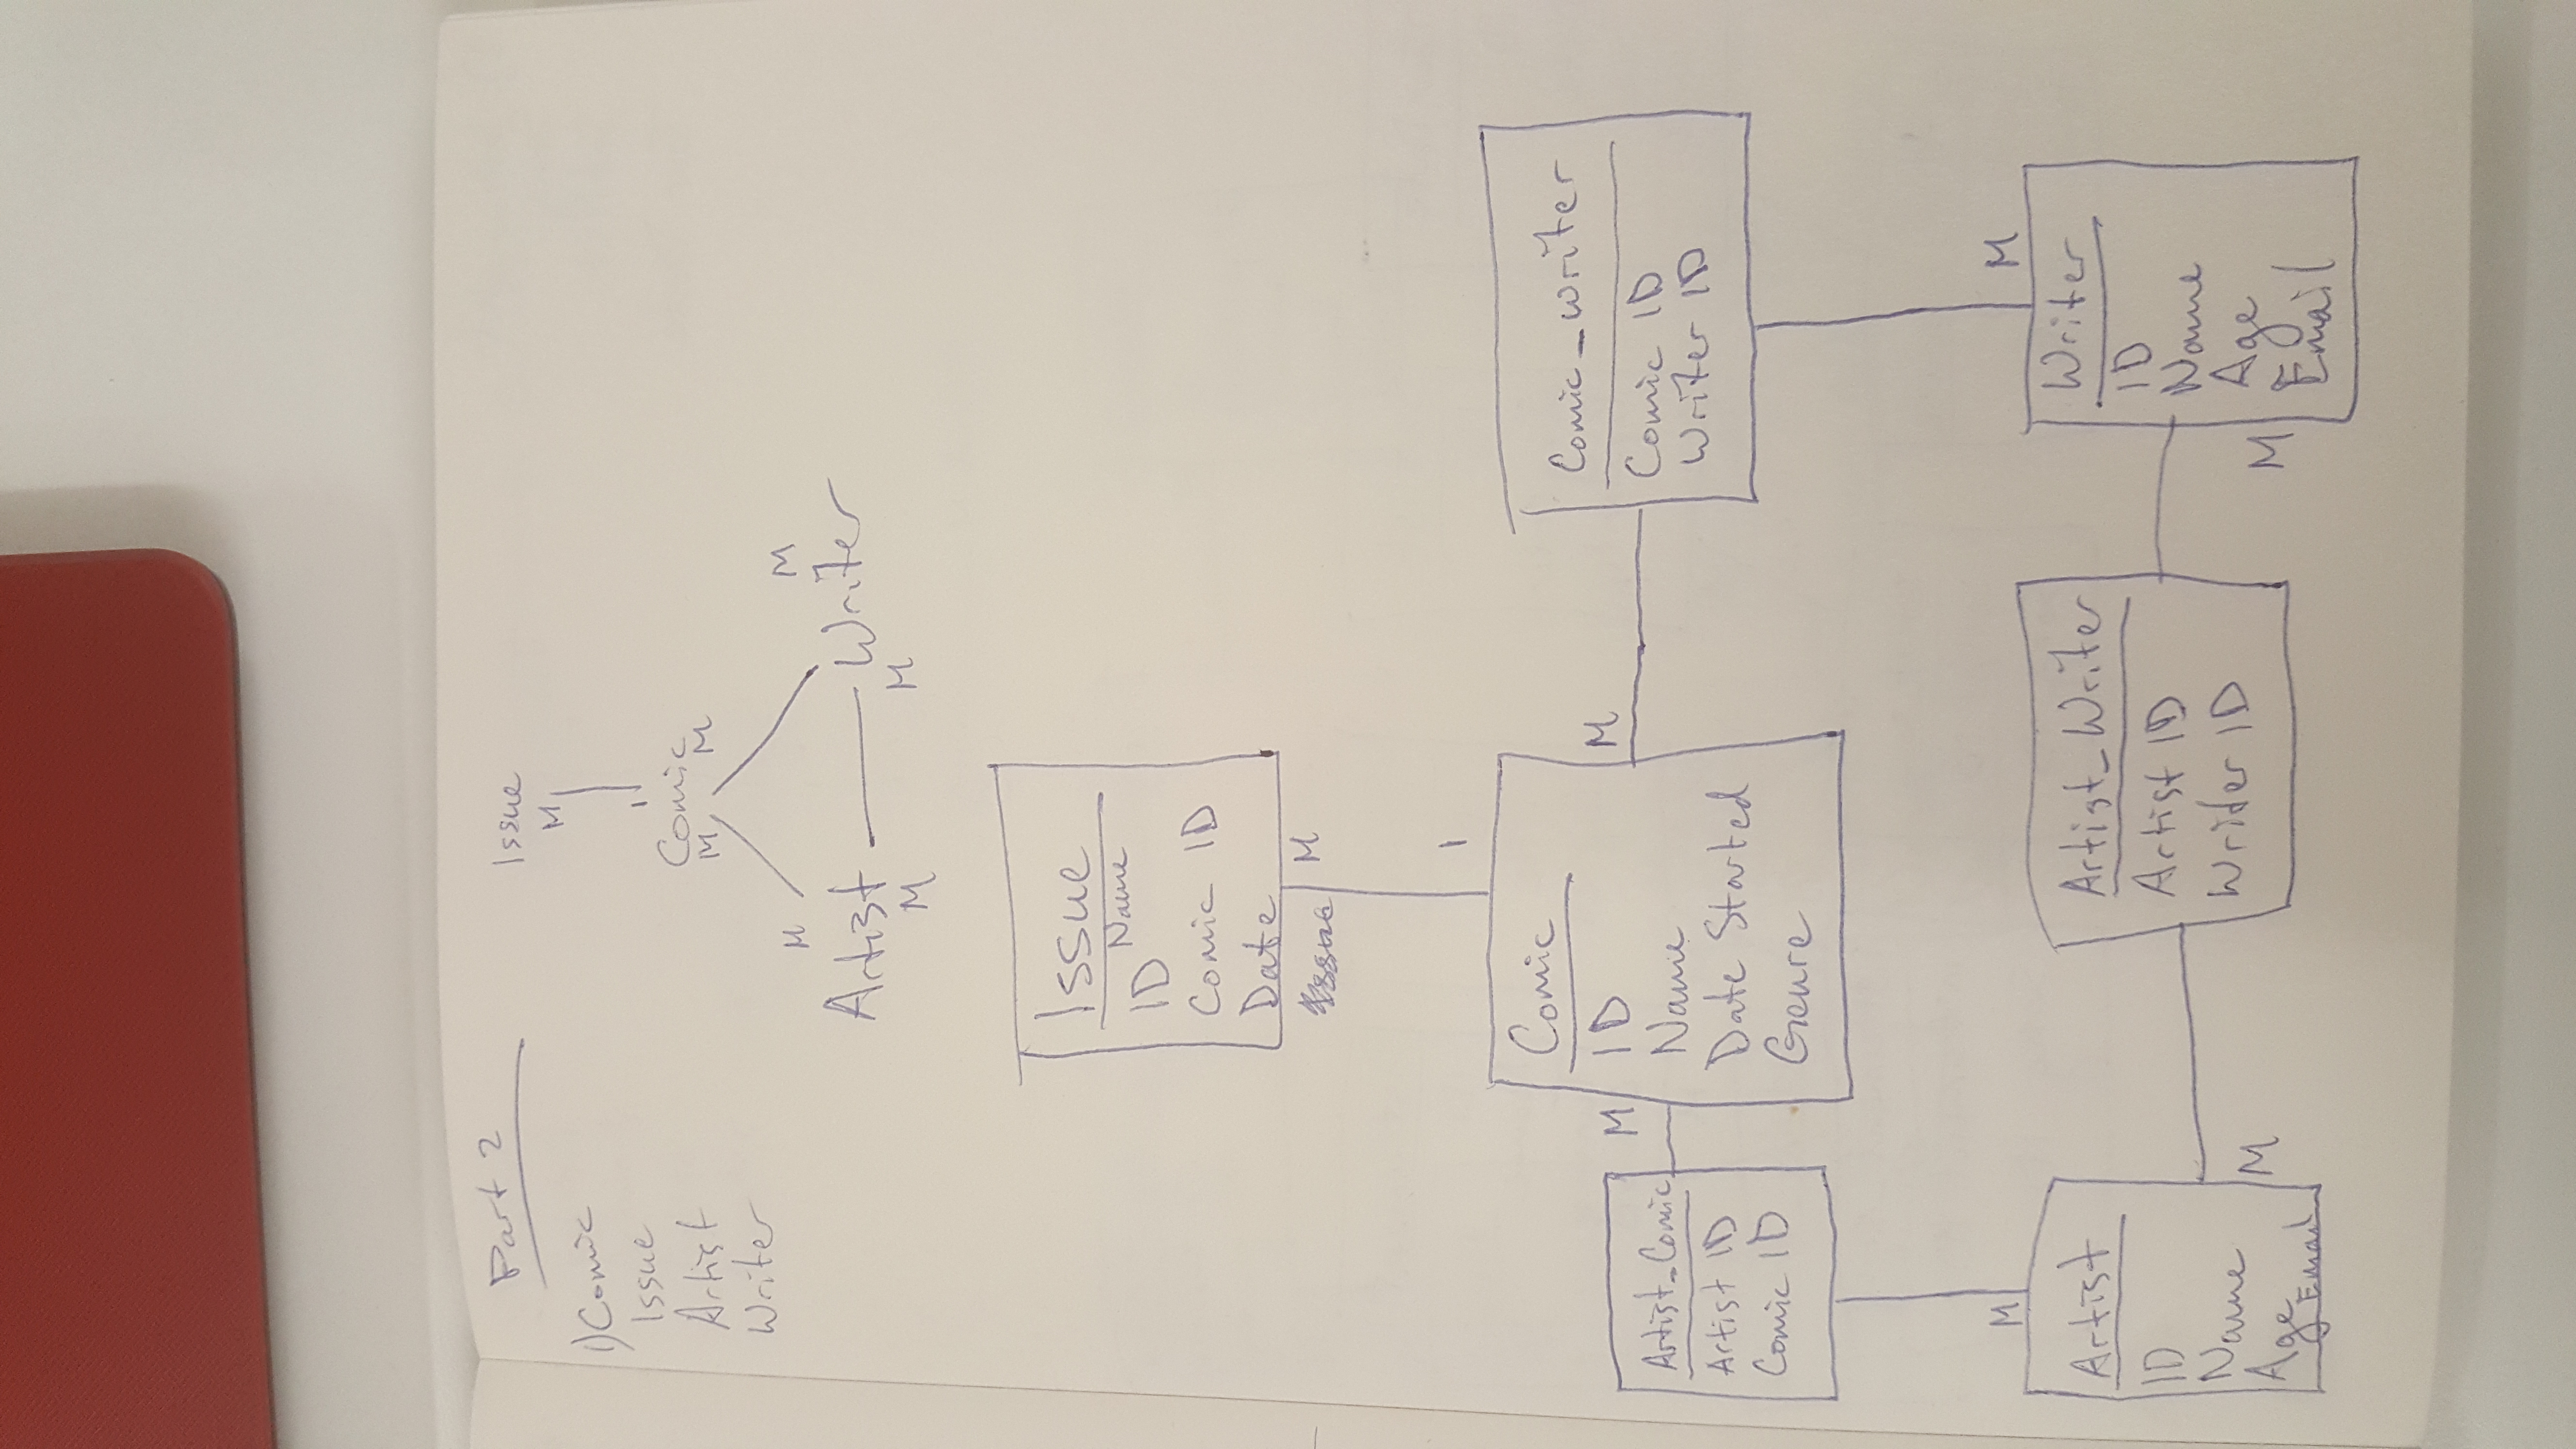 Part 2
1) Comic
Issue
Artist
Writer
Issue
M
1
Comic
M M
M M
Artist Writer
M M
Issue
Name
ID
Comic ID
Date
Issue M
1
Comic
ID
Name
Date Started
Genre
M
M
Artist_Comic
Artist ID
Comic ID
Comic_writer
Comic ID
Writer ID
M
M
Artist
ID
Name
Age Email
M
Artist_Writer
Artist ID
Writer ID
M
Writer
ID
Name
Age
Email